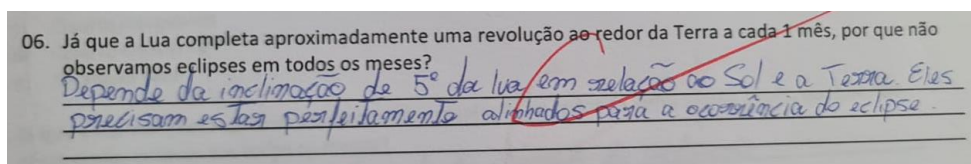 06. Já que a Lua completa aproximadamente uma revolução ao redor da Terra a cada 1 mês, por que não
observamos eclipses em todos os meses?
Depende da inclinação de 5° da lua em relação ao Sol e a Terra. Eles
precisam estar perfeitamente alinhados para a ocorrência do eclipse.